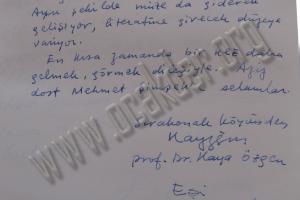 Aynı şekilde müze da giderek
gelişiyor, literatüre girecek düzeye
varıyor.
En kısa zamanda bir kez daha
gelmek, görmek dileğiyle. Aziz
dost Mehmet Şimşek'e selamlar.
Sırakonak Köyünden
Prof. Dr. Kaya Özgen
www.orakder.org